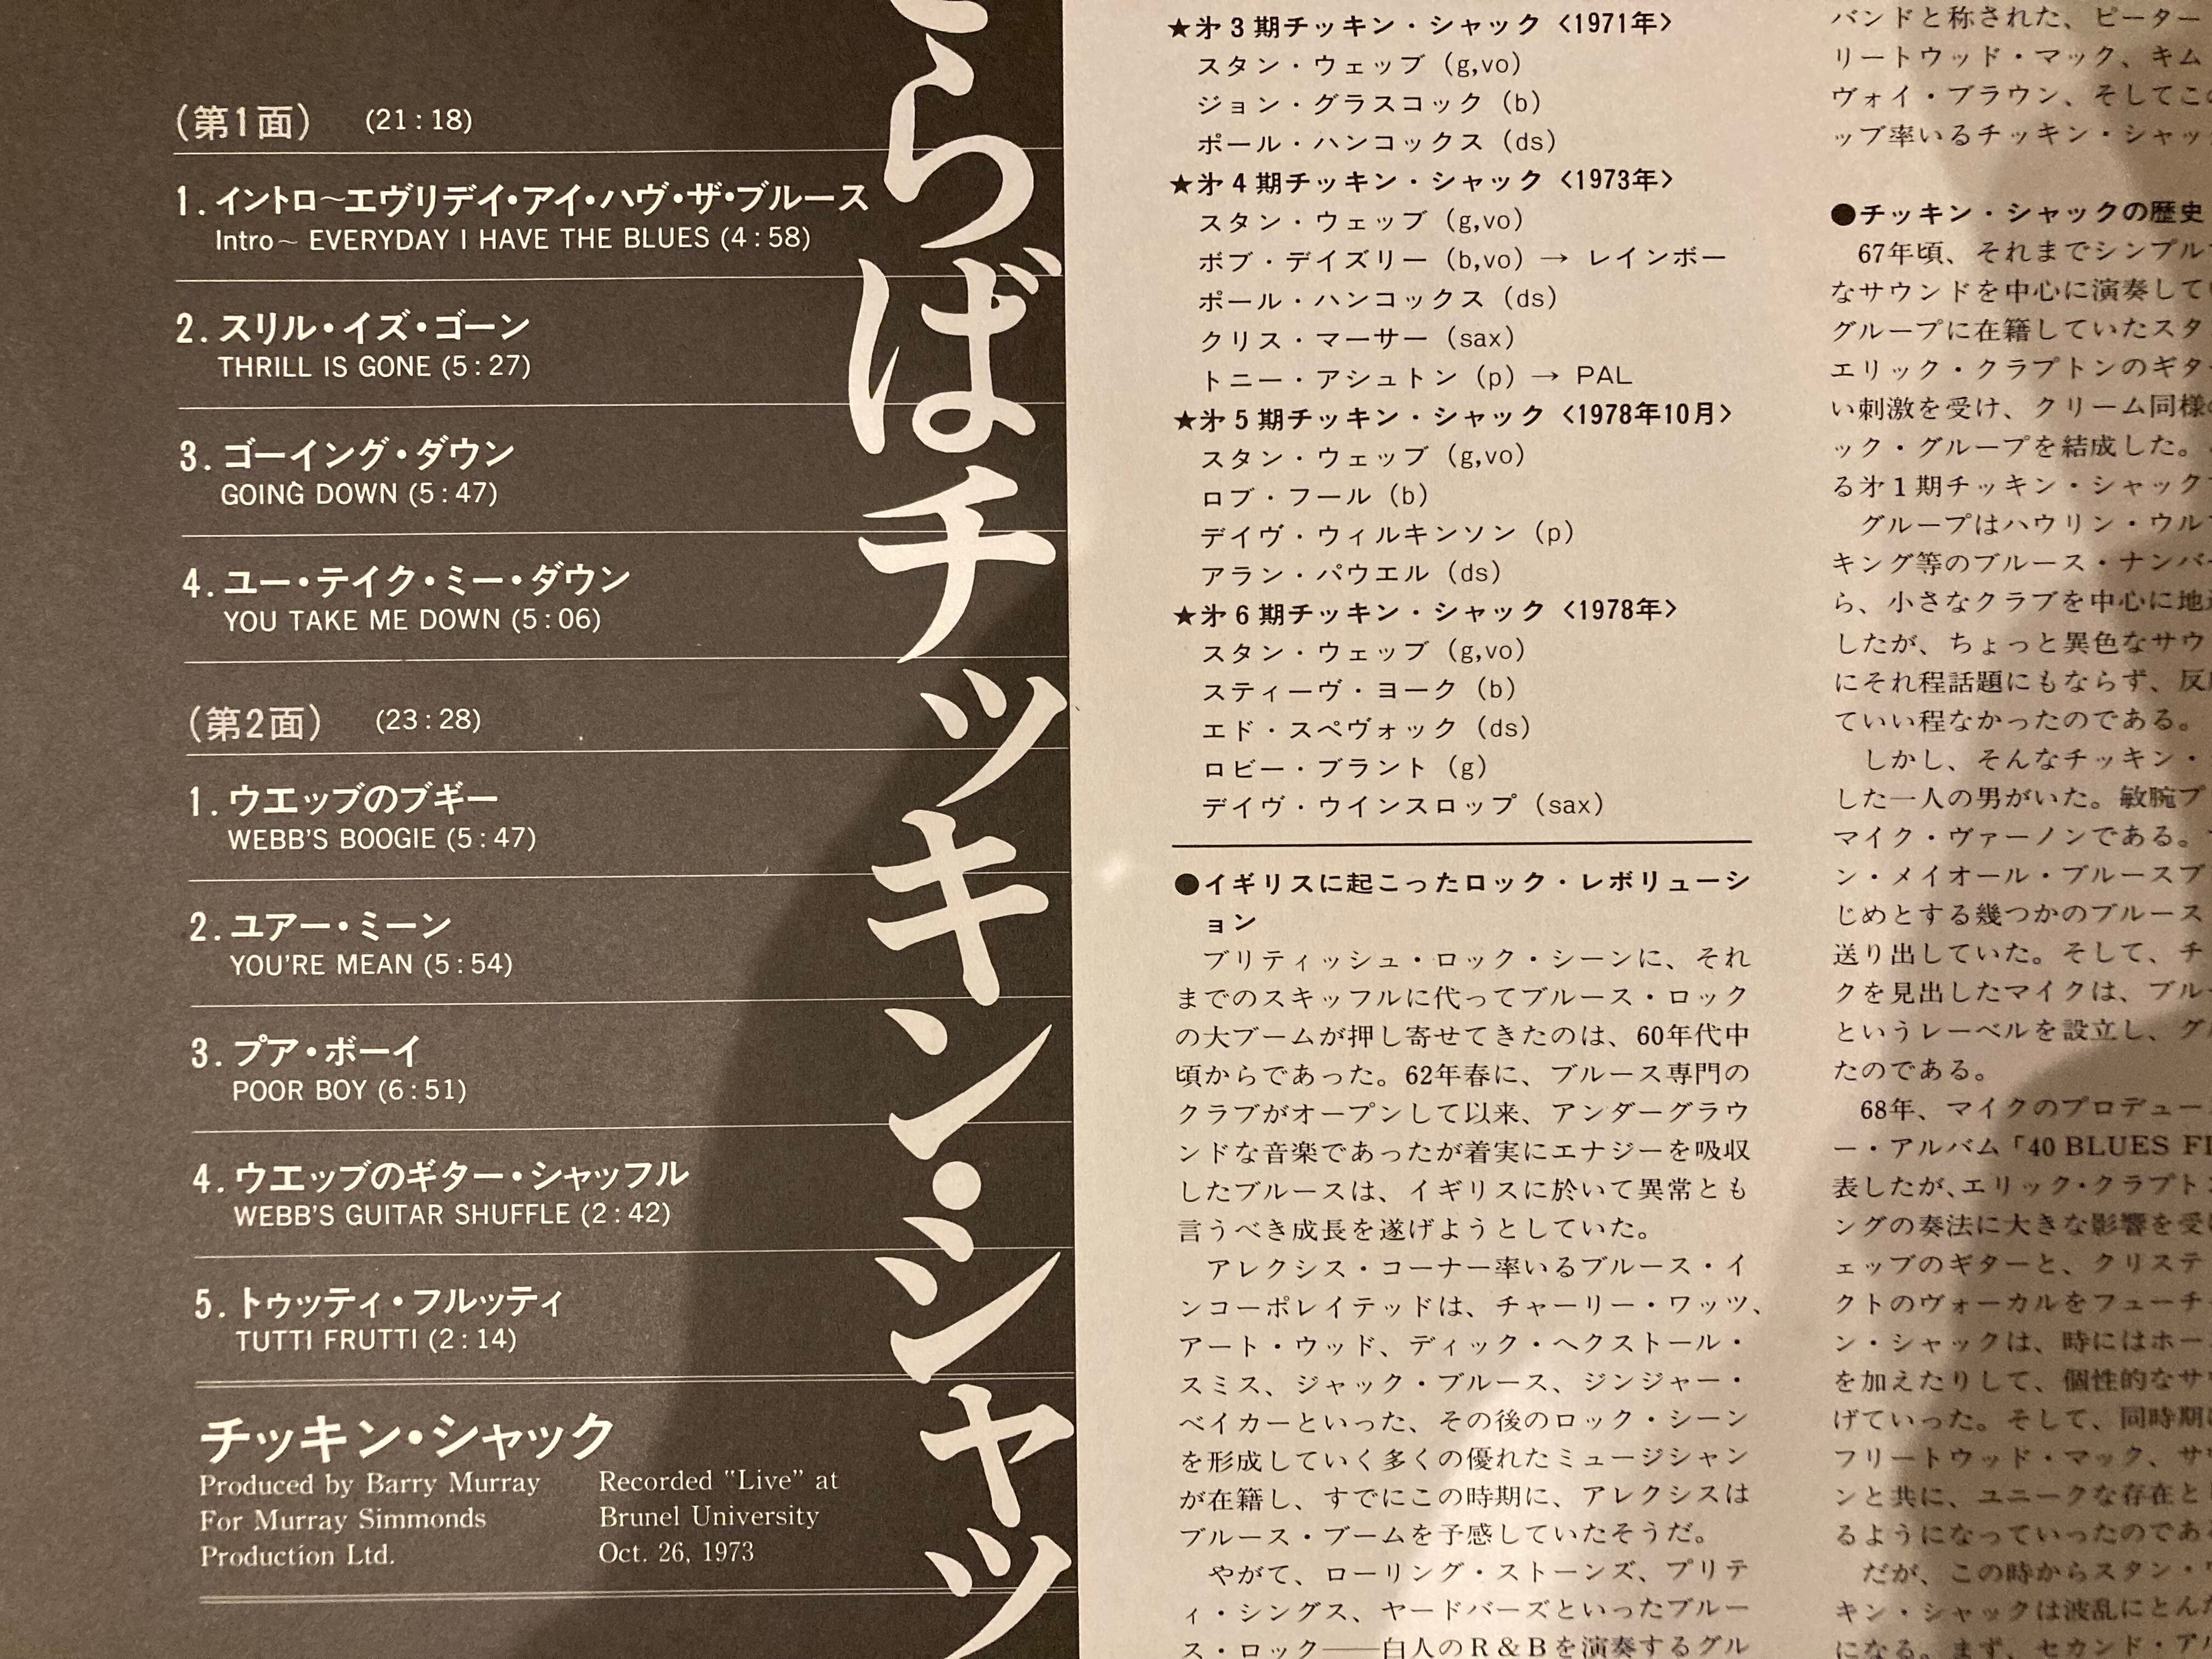 らばチッキン・シャッ
(第1面) (21:18)
1. イントロ~エヴリデイ・アイ・ハヴ・ザ・ブルース
Intro~ EVERYDAY I HAVE THE BLUES (4:58)
2. スリル・イズ・ゴーン
THRILL IS GONE (5:27)
3. ゴーイング・ダウン
GOING DOWN (5:47)
4. ユー・テイク・ミー・ダウン
YOU TAKE ME DOWN (5:06)
(第2面) (23:28)
1. ウエッブのブギー
WEBB'S BOOGIE (5:47)
2. ユアー・ミーン
YOU'RE MEAN (5:54)
3. プア・ボーイ
POOR BOY (6:51)
4. ウエッブのギター・シャッフル
WEBB'S GUITAR SHUFFLE (2:42)
5. トゥッティ・フルッティ
TUTTI FRUTTI (2:14)
チッキン・シャック
Produced by Barry Murray
For Murray Simmonds
Production Ltd.
Recorded "Live" at
Brunel University
Oct. 26, 1973
★㐧3期チッキン・シャック〈1971年〉
スタン・ウェッブ (g,vo)
ジョン・グラスコック (b)
ポール・ハンコックス (ds)
★㐧4期チッキン・シャック〈1973年〉
スタン・ウェッブ (g,vo)
ボブ・デイズリー (b,vo) → レインボー
ポール・ハンコックス (ds)
クリス・マーサー (sax)
トニー・アシュトン (p) → PAL
★㐧5期チッキン・シャック〈1978年10月〉
スタン・ウェッブ (g,vo)
ロブ・フール (b)
デイヴ・ウィルキンソン (p)
アラン・パウエル (ds)
★㐧6期チッキン・シャック〈1978年〉
スタン・ウェッブ (g,vo)
スティーヴ・ヨーク (b)
エド・スペヴォック (ds)
ロビー・ブラント (g)
デイヴ・ウインスロップ (sax)
●イギリスに起こったロック・レボリューシ
ョン
ブリティッシュ・ロック・シーンに、それ
までのスキッフルに代ってブルース・ロック
の大ブームが押し寄せてきたのは、60年代中
頃からであった。62年春に、ブルース専門の
クラブがオープンして以来、アンダーグラウ
ンドな音楽であったが着実にエナジーを吸収
したブルースは、イギリスに於いて異常とも
言うべき成長を遂げようとしていた。
アレクシス・コーナー率いるブルース・イ
ンコーポレイテッドは、チャーリー・ワッツ、
アート・ウッド、ディック・ヘクストール・
スミス、ジャック・ブルース、ジンジャー・
ベイカーといった、その後のロック・シーン
を形成していく多くの優れたミュージシャン
が在籍し、すでにこの時期に、アレクシスは
ブルース・ブームを予感していたそうだ。
やがて、ローリング・ストーンズ、プリテ
ィ・シングス、ヤードバーズといったブルー
ス・ロック――白人のR&Bを演奏するグル
バンドと称された、ピーター
リートウッド・マック、キム
ヴォイ・ブラウン、そしてこの
ップ率いるチッキン・シャッ
●チッキン・シャックの歴史
67年頃、それまでシンプル
なサウンドを中心に演奏して
グループに在籍していたスタ
エリック・クラプトンのギタ
い刺激を受け、クリーム同様の
ック・グループを結成した。
る㐧1期チッキン・シャック
グループはハウリン・ウル
キング等のブルース・ナンバ
ら、小さなクラブを中心に地
したが、ちょっと異色なサウ
にそれ程話題にもならず、反
ていい程なかったのである。
しかし、そんなチッキン・
した一人の男がいた。敏腕プ
マイク・ヴァーノンである。
ン・メイオール・ブルースブ
じめとする幾つかのブルース
送り出していた。そして、チ
クを見出したマイクは、ブル
というレーベルを設立し、グ
たのである。
68年、マイクのプロデュー
ー・アルバム「40 BLUES F
表したが、エリック・クラプト
ングの奏法に大きな影響を受
ェップのギターと、クリステ
クトのヴォーカルをフューチ
ン・シャックは、時にはホー
を加えたりして、個性的なサ
げていった。そして、同時期
フリートウッド・マック、サ
ンと共に、ユニークな存在と
るようになっていったのであ
だが、この時からスタン・
キン・シャックは波乱にとん
になる。まず、セカンド・ア